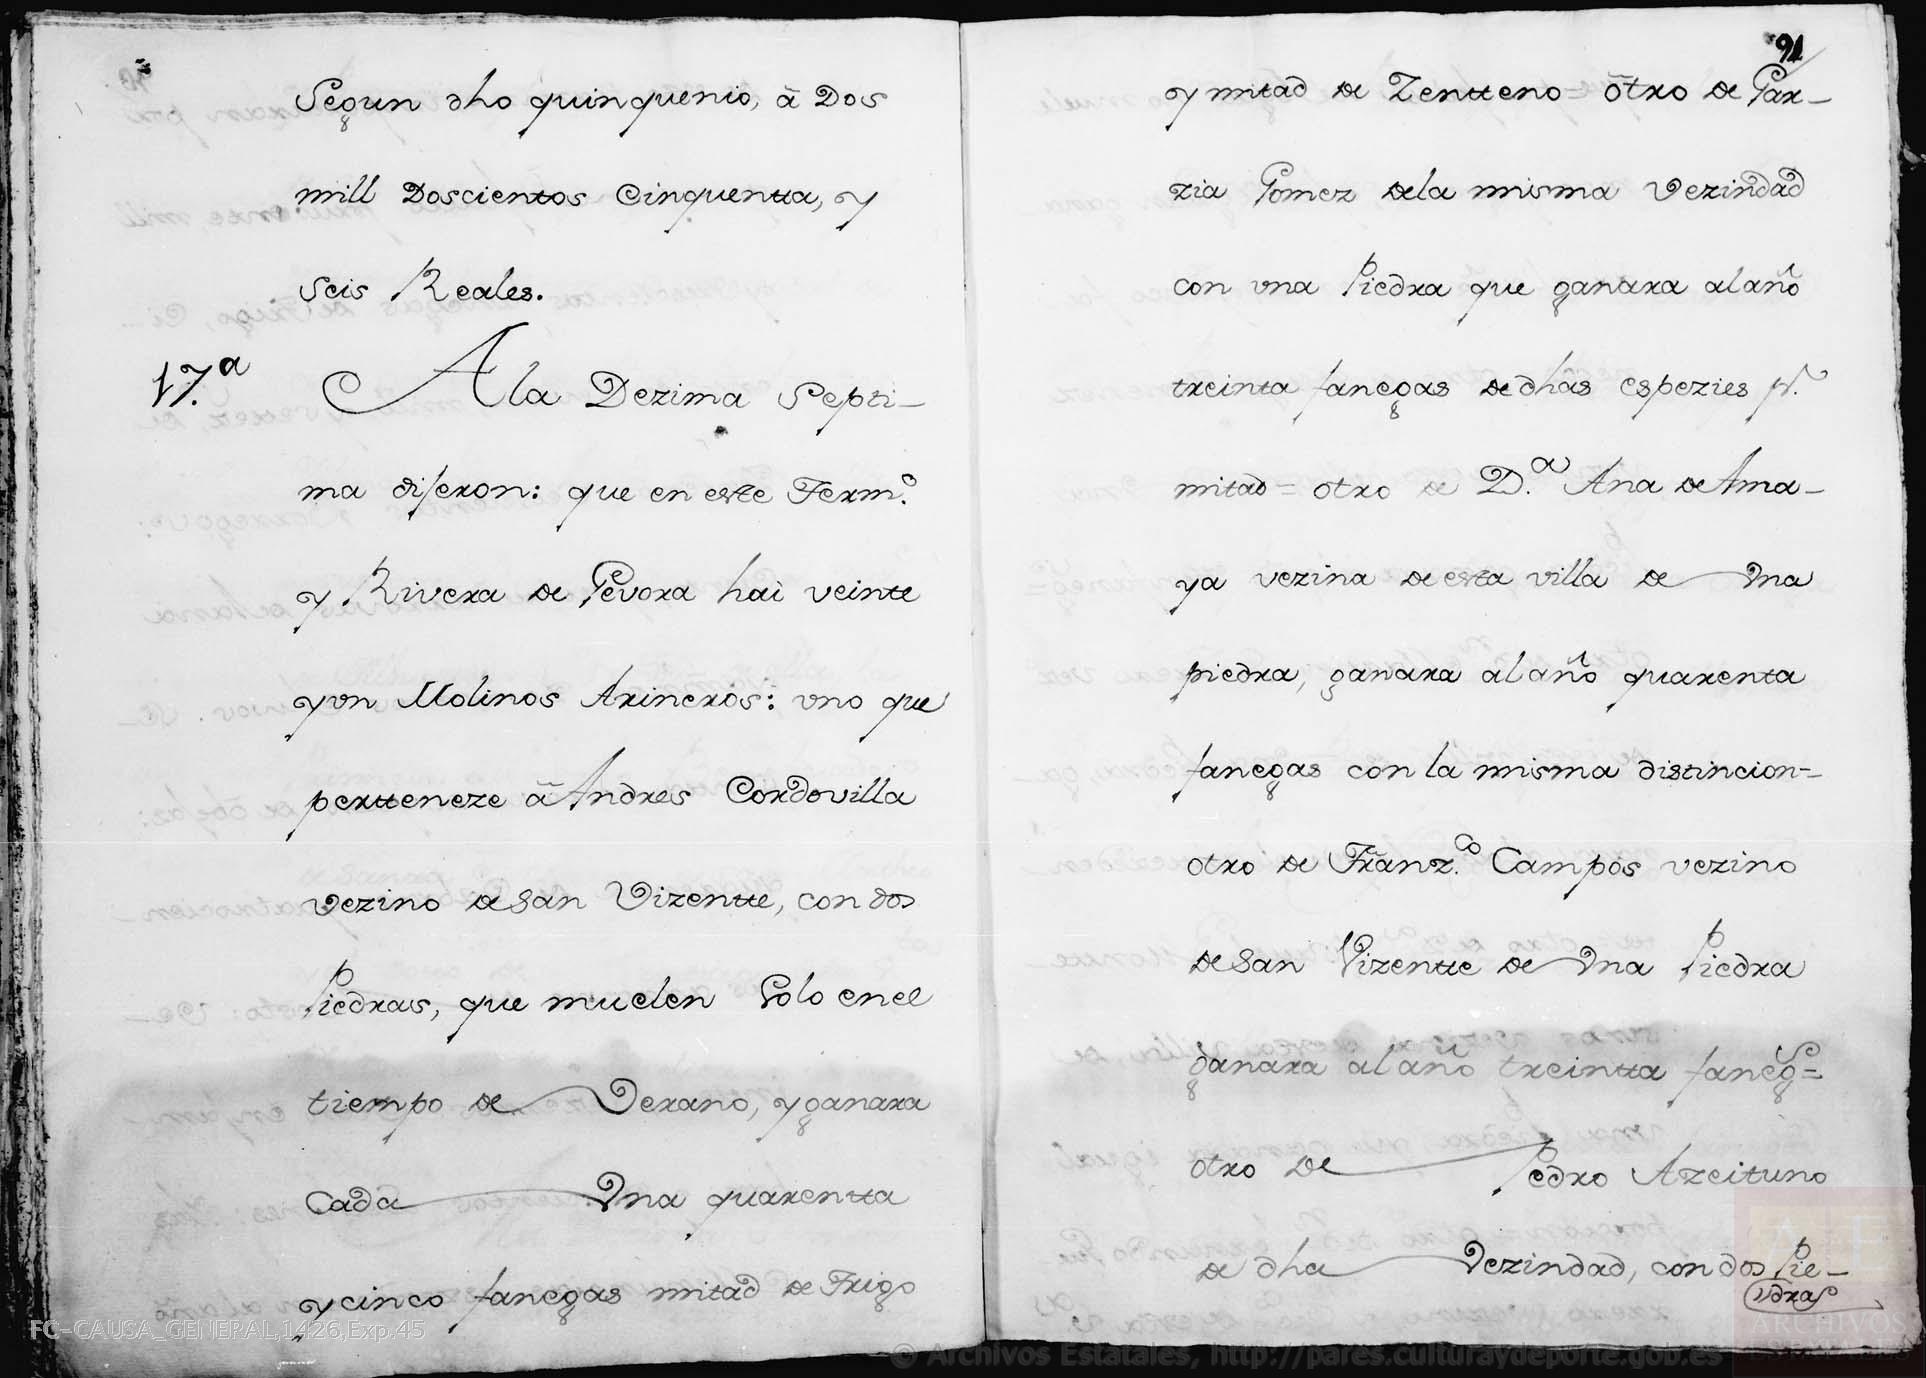 Segun dho quinquenio, â Dos
mill Doscientos Cinquentta, y
Seis Reales.
17.ª
A la Dezima Septi-
ma dijeron: que en este Term.º
y Rivera de Gevora hai veinte
y un Molinos Arineros: uno que
pertteneze â Andres Cordovilla
vezino de San Vizentte, con dos
Piedras, que muelen Solo en el
tiempo de Verano, y ganara
Cada Una quarentta
y cinco fanegas mitad de Trigo
91
y mitad de Zentteno= ôtro de Gar-
zia Gomez de la misma Vezindad
con una Piedra que ganara al año
treinta fanegas de dhas espezies p.r
mitad= otro de D.ª Ana de Ama-
ya vezina de esta villa de Una
piedra, ganara al año quarenta
fanegas con la misma distincion=
otro de Franz.co Campos vezino
de San Vizentte de Una Piedra
ganara al año treintta faneg.s=
otro de Pedro Azeituno
de dha Vezindad, con dos Pie-
dras
FC-CAUSA_GENERAL,1426,Exp.45
© Archivos Estatales, http://pares.culturaydeporte.gob.es
ARCHIVOS
ESTATALES